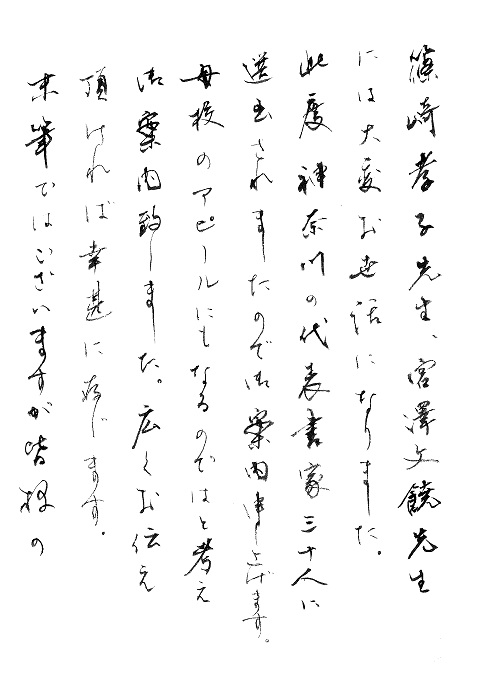 篠崎孝子先生、宮澤文饒先生
には大変お世話になりました。
此度神奈川の代表書家三十人に
選出されましたので御案内申し上げます。
母校のアピールにもなるのではと考え
御案内致しました。広くお伝え
頂ければ幸甚に存じます。
末筆ではございますが皆様の